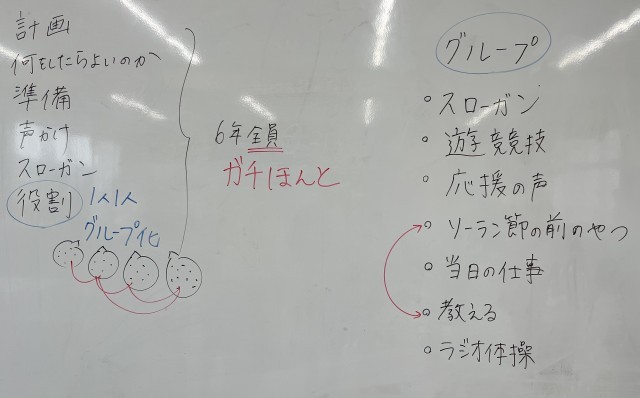 計画
何をしたらよいのか
準備
声かけ
スローガン
役割 1人1人
グループ化
6年全員
ガチほんと
グループ
スローガン
遊競技
応援の声
ソーラン節の前のやつ
当日の仕事
教える
ラジオ体操